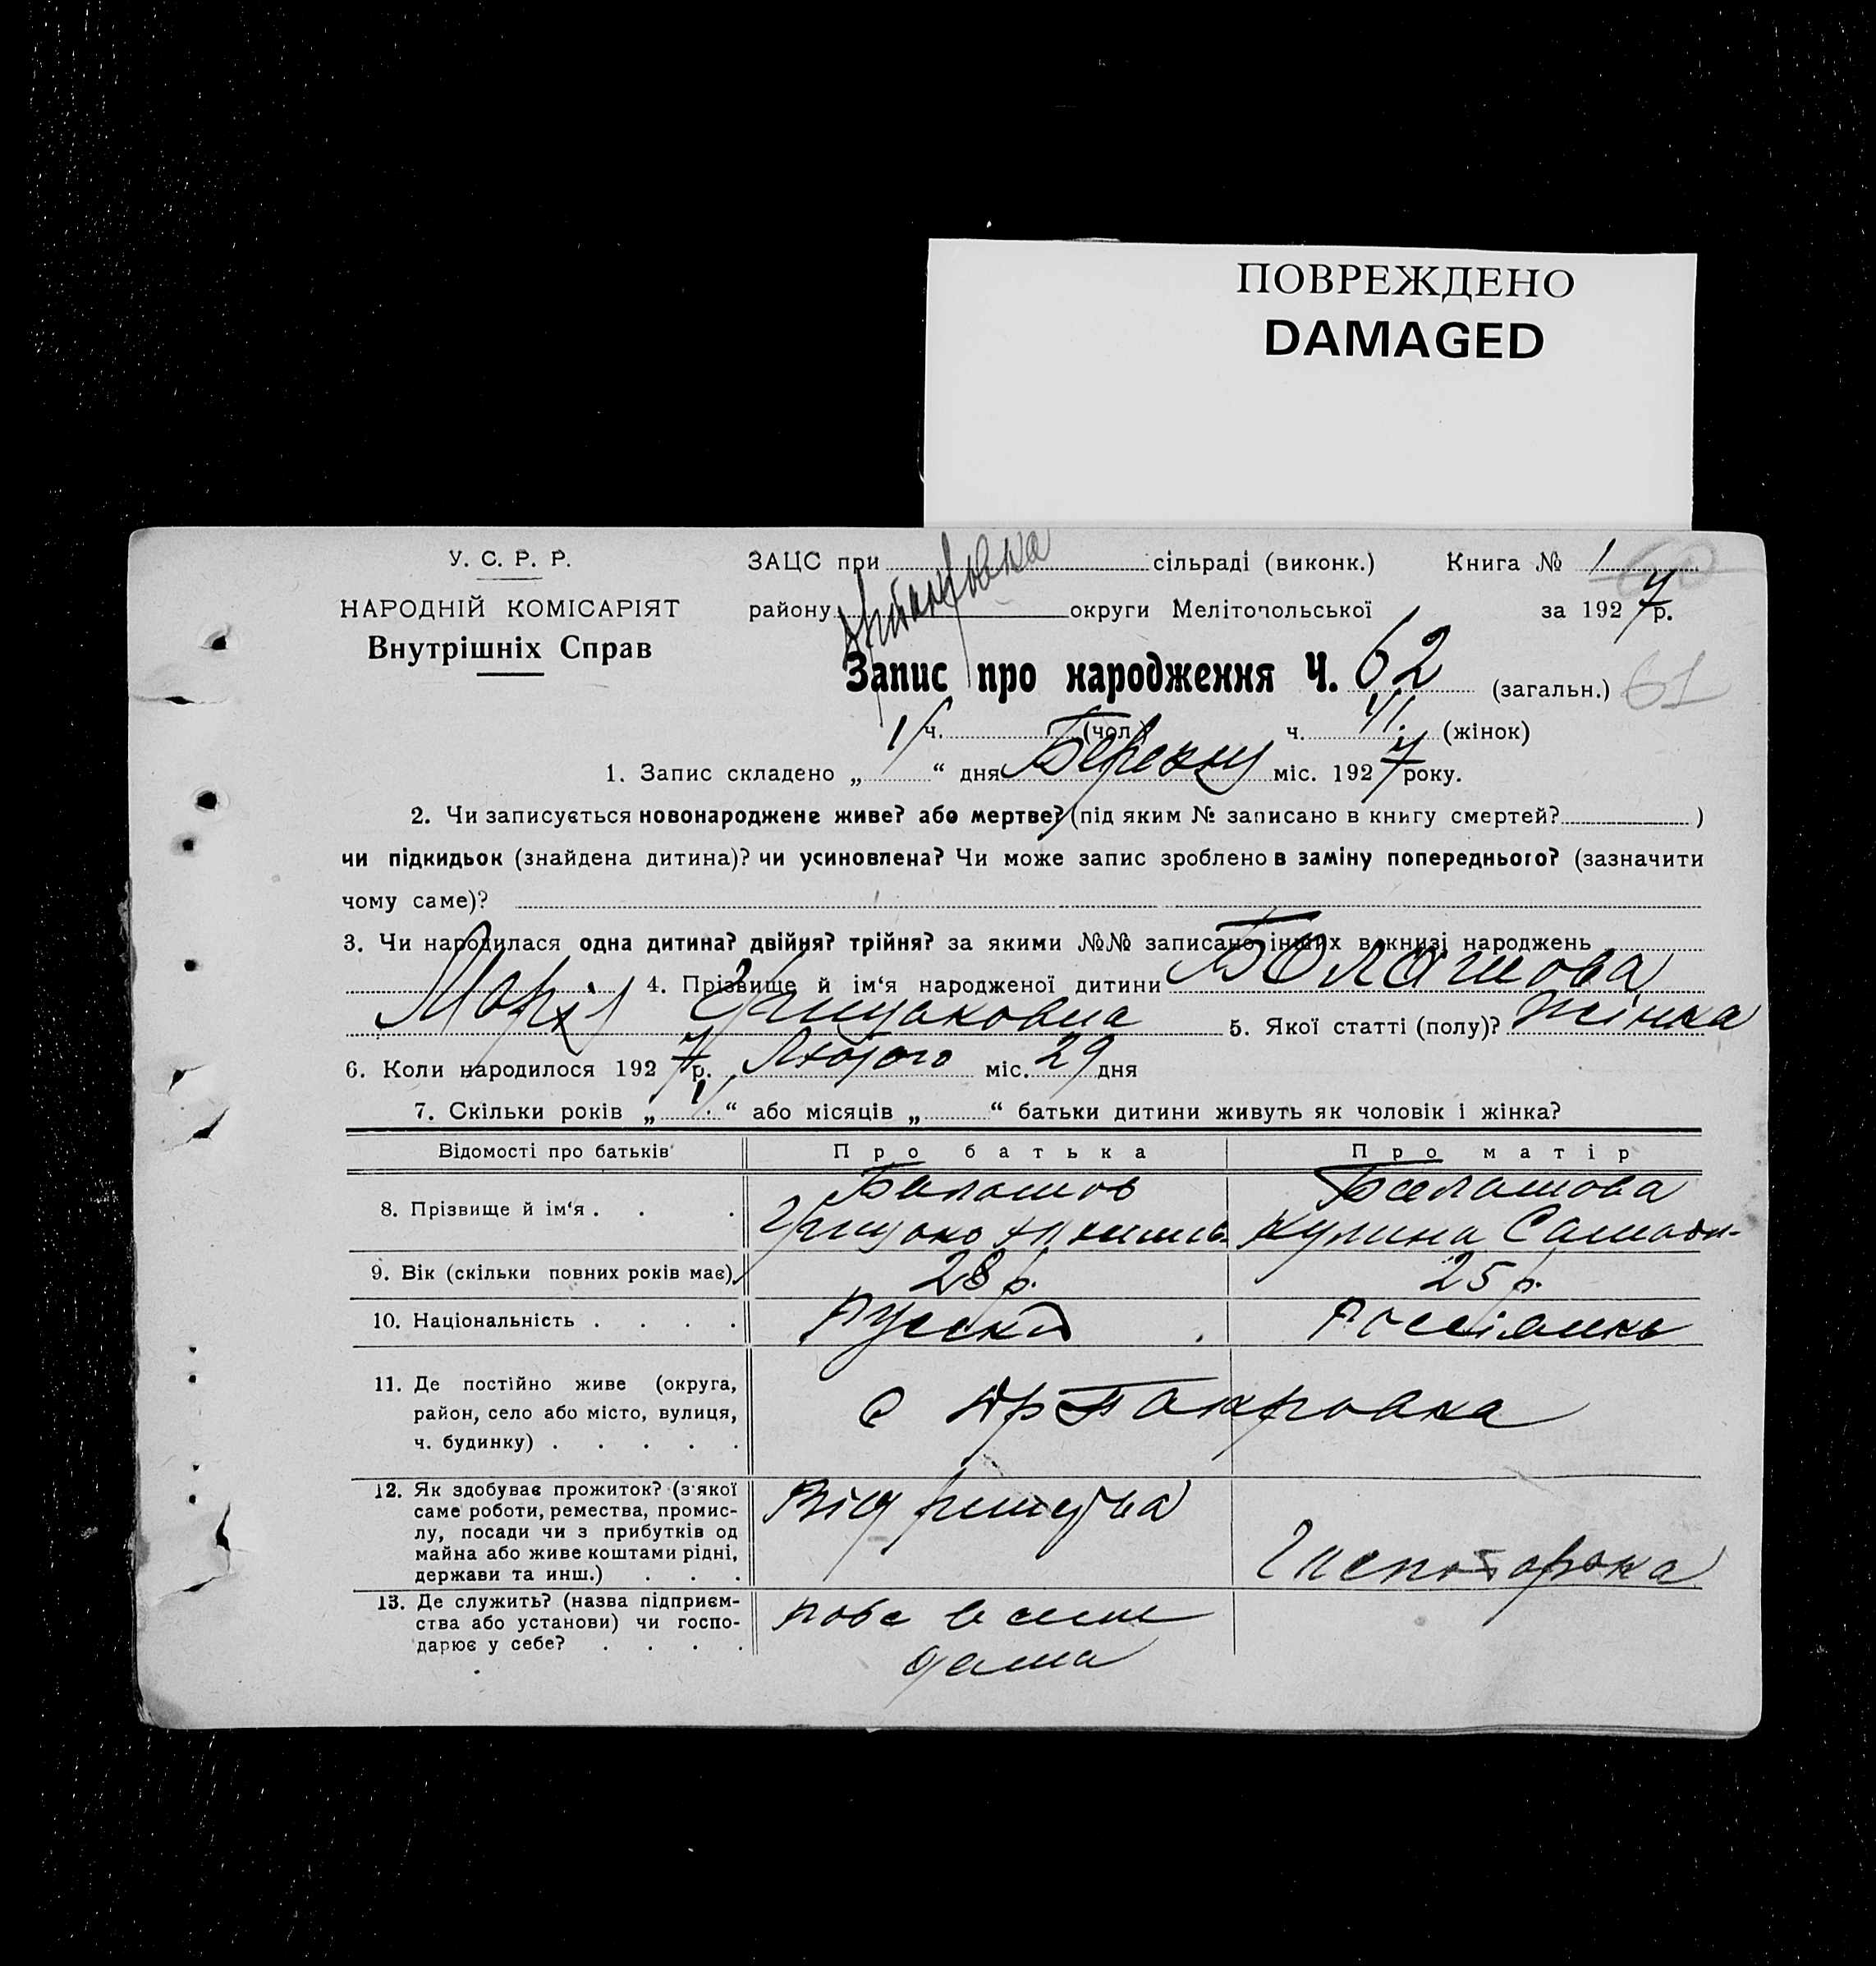 ПОВРЕЖДЕНО
DAMAGED
У. С. Р. Р.
НАРОДНІЙ КОМІСАРІЯТ
Внутрішніх Справ
ЗАЦС при сільраді (виконк.) Книга № 1 60
району округи Мелітопольської за 1927 р.
Запис про народження Ч. 62 (загальн.) 61
ч. (чол.) ч. (жінок)
1. Запис складено „ 1 “ дня Березня міс. 1927 року.
2. Чи записується новонароджене живе? або мертве? (під яким № записано в книгу смертей? )
чи підкидьок (знайдена дитина)? чи усиновлена? Чи може запис зроблено в заміну попереднього? (зазначити
чому саме)?
3. Чи народилася одна дитина? двійня? трійня? за якими №№ записано інших в книзі народжень
4. Прізвище й ім‘я народженої дитини Болашова
Марія 5. Якої статті (полу)? Жінка
6. Коли народилося 1927 р. Лютого міс. 29 дня
7. Скільки років „ 1 “ або місяців „ “ батьки дитини живуть як чоловік і жінка?
Відомості про батьків Про батька Про матір
8. Прізвище й ім‘я . . . Балашов Балашова
Кулина
9. Вік (скільки повних років має) 28 р. 25 р.
10. Національність . . . . Руский
11. Де постійно живе (округа,
район, село або місто, вулиця,
ч. будинку) . . . . .
с
12. Як здобуває прожиток? (з якої
саме роботи, ремества, промис-
лу, посади чи з прибутків од
майна або живе коштами рідні,
держави та инш.) . . .
Від
13. Де служить? (назва підприєм-
ства або установи) чи госпо-
дарює у себе? . . . .